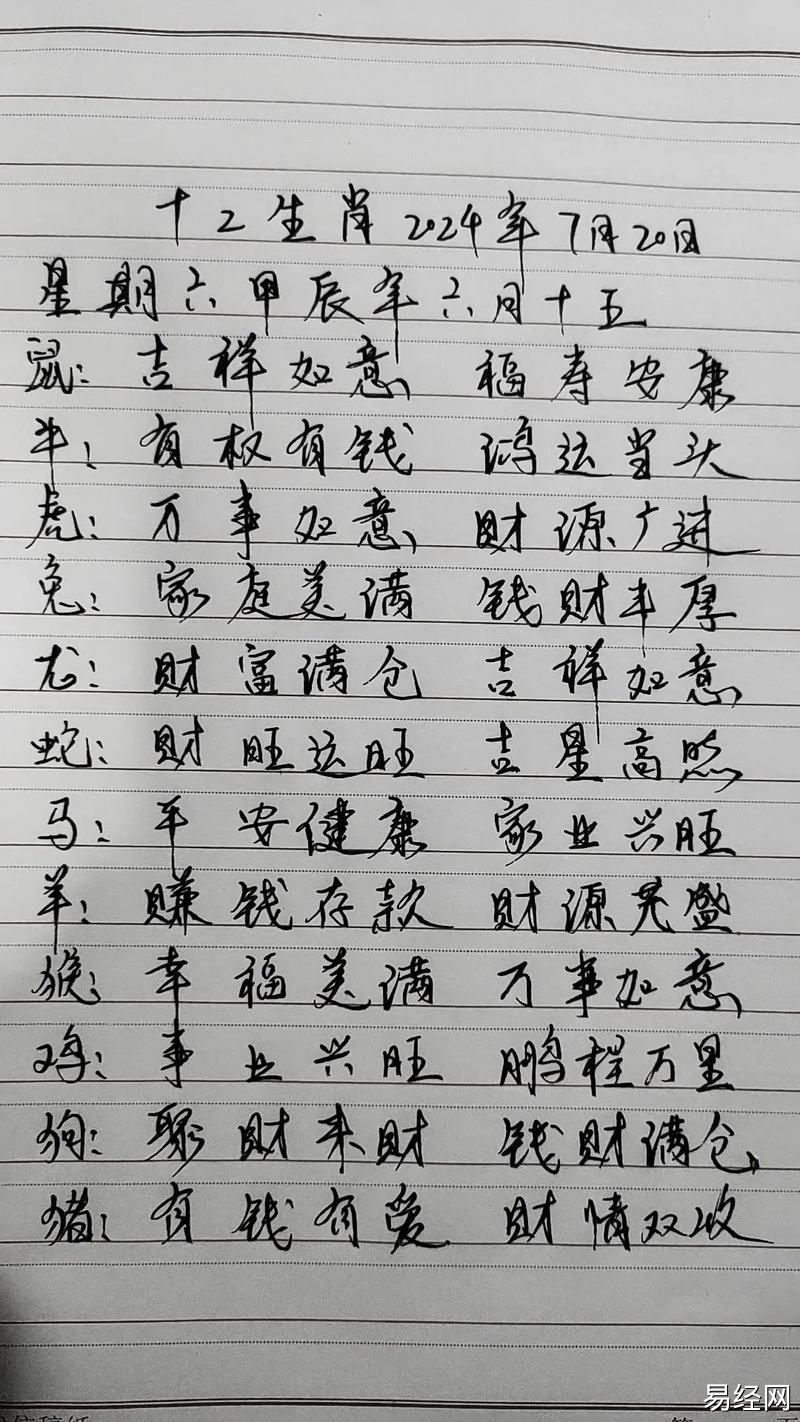 十二生肖2024年7月20日
星期六甲辰年六月十五
鼠：吉祥如意 福寿安康
牛：有权有钱 鸿运当头
虎：万事如意 财源广进
兔：家庭美满 钱财丰厚
龙：财富满仓 吉祥如意
蛇：财旺运旺 吉星高照
马：平安健康 家业兴旺
羊：赚钱存款 财源茂盛
猴：幸福美满 万事如意
鸡：事业兴旺 鹏程万里
狗：聚财来财 钱财满仓
猪：有钱有爱 财情双收
易经网